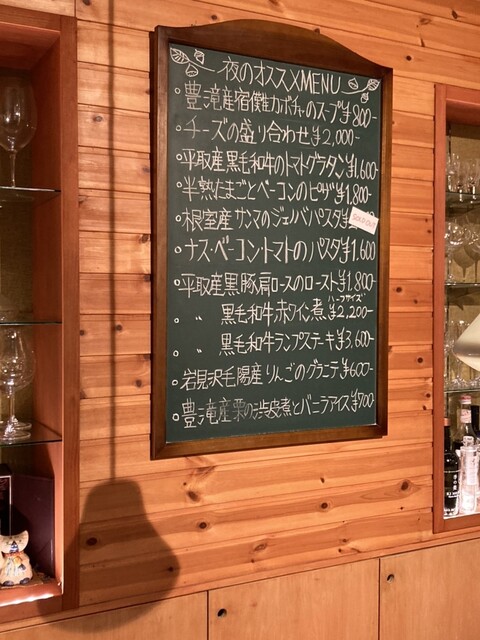 夜のオススメMENU
豊滝産宿儺カボチャのスープ¥800-
チーズの盛り合わせ¥2,000-
平取産黒毛和牛のトマトグラタン¥1,600-
半熟たまごとベーコンのピザ¥1,800-
根室産サンマのジェノバパスタ¥
ナス・ベーコントマトのパスタ¥1,600
平取産黒豚肩ロースのロースト¥1,800-
ハーフサイズ
〃 黒毛和牛赤ワイン煮¥2,200-
〃 黒毛和牛ランプステーキ¥3,600-
岩見沢毛陽産りんごのグラニテ¥600-
豊滝産栗の渋皮煮とバニラアイス¥700-